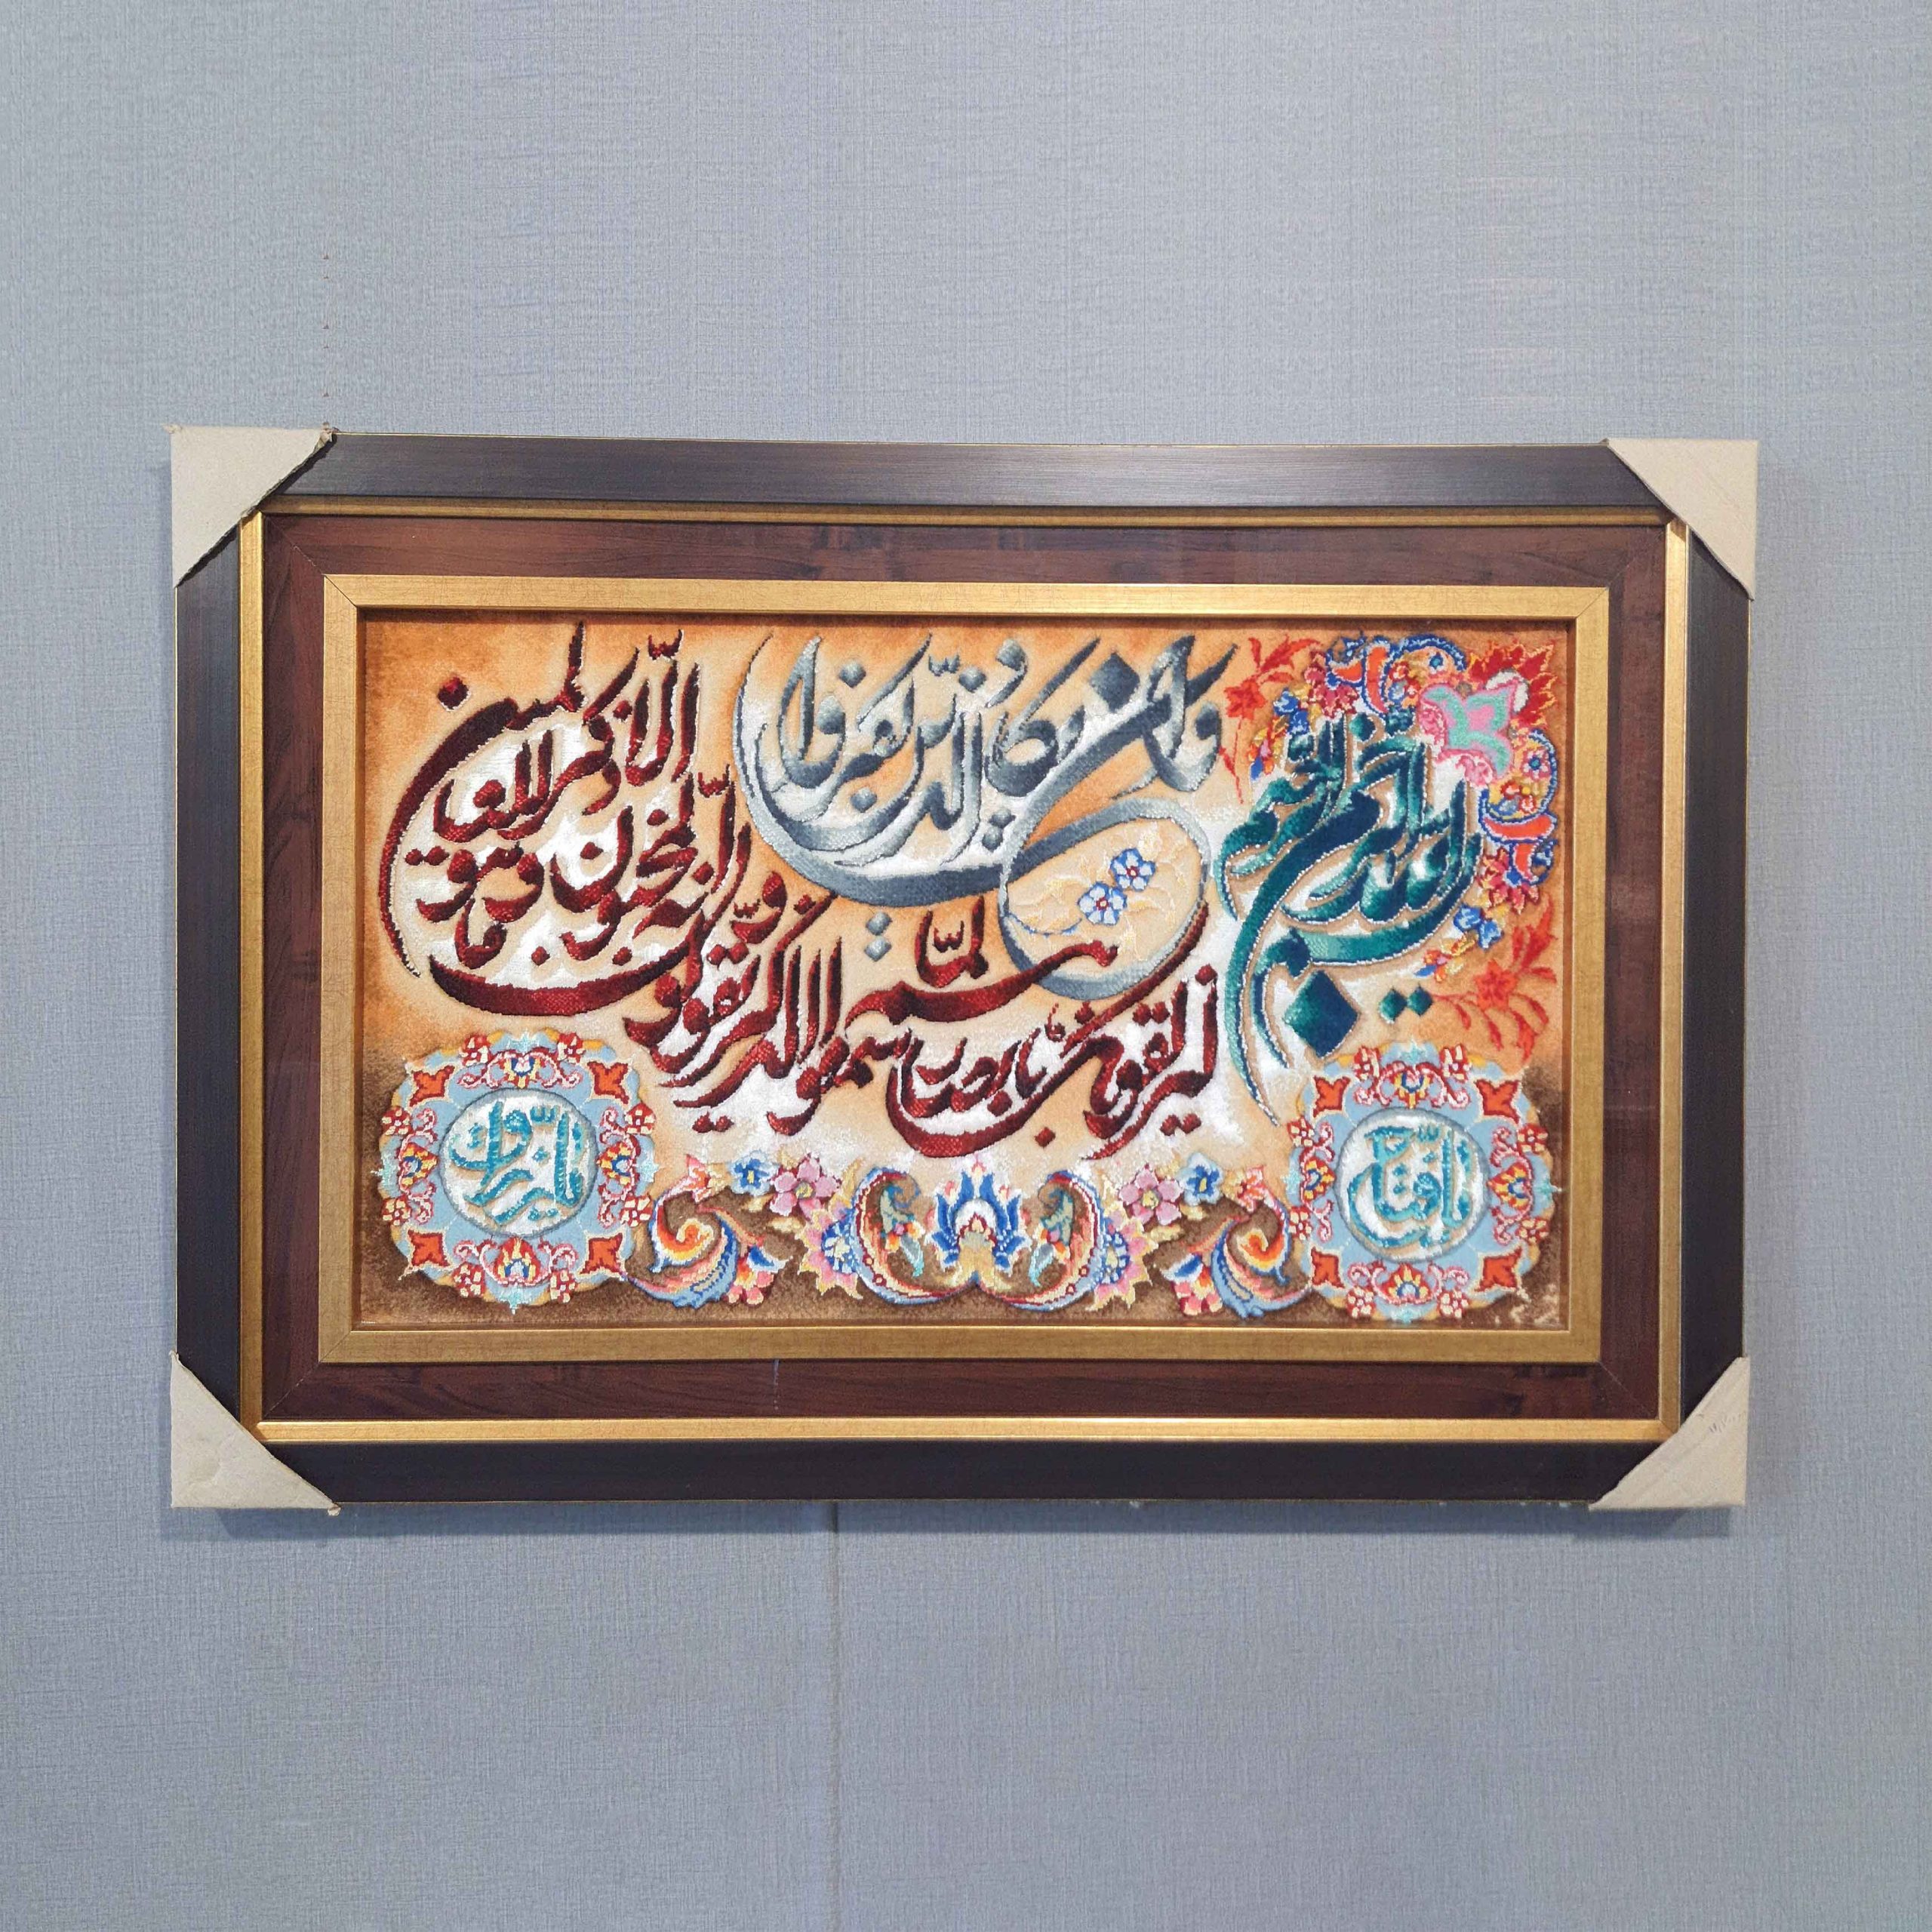 بسم الله الرحمن الرحیم
وان یکاد الذین کفروا
لیزلقونک بابصارهم لما سمعوا الذکر و یقولون انه لمجنون
وما هو الا ذکر للعالمین
یا فتاح
یا رزاق